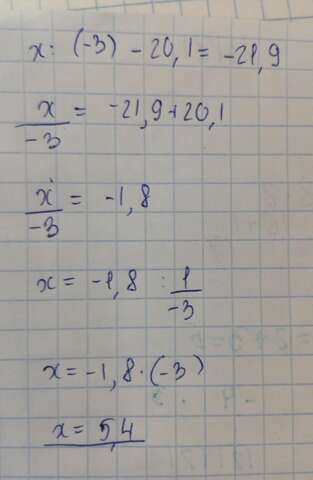 x : (-3) - 20,1 = -21,9
x/-3 = -21,9+20,1
x/-3 = -1,8
x = -1,8 : 1/-3
x = -1,8 · (-3)
x = 5,4